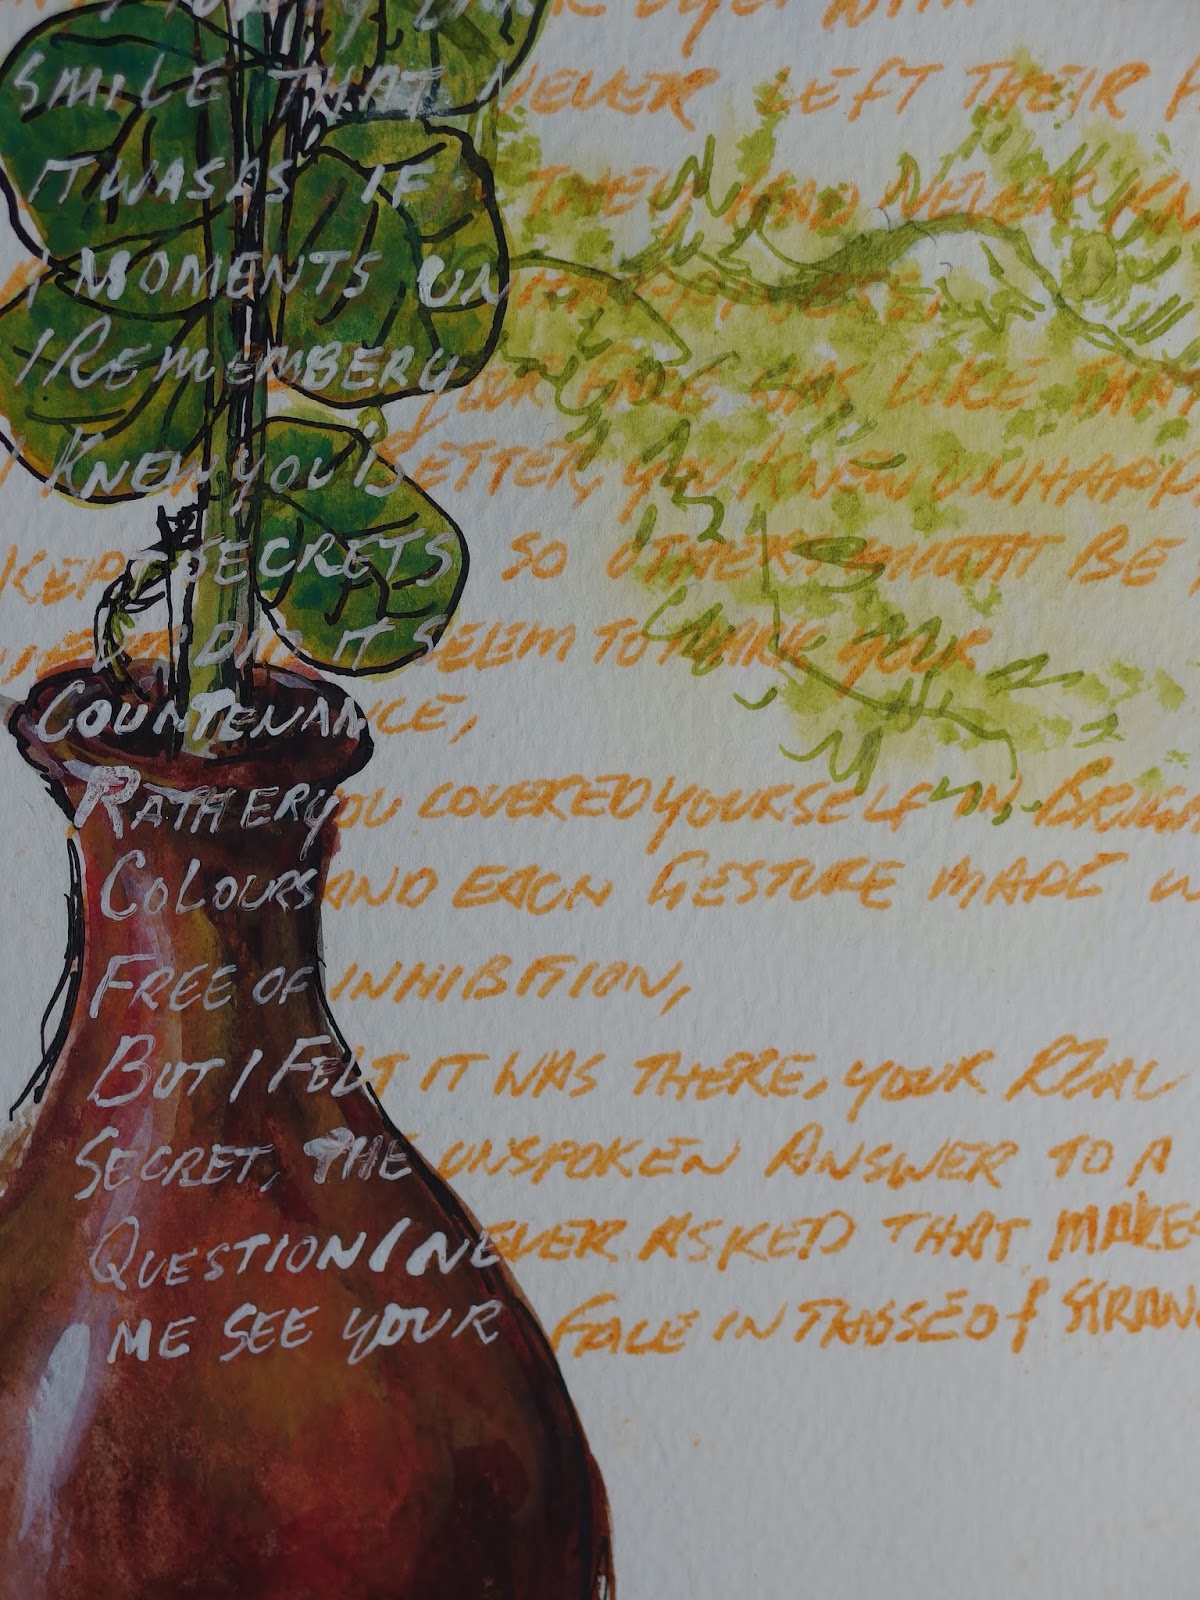 SMILE THAT NEVER LEFT THEIR
IT WAS AS IF THEY HAD NEVER
A MOMENTS UNHAPPINESS.
I REMEMBER YOUR FACE WAS LIKE THAT
I KNEW YOU BETTER, YOU KNEW UNHAPP
KEPT SECRETS SO OTHERS MIGHT BE
DID IT SEEM TO MARK YOUR
COUNTENANCE,
RATHER YOU COVERED YOURSELF IN BRIGH
COLOURS AND EACH GESTURE MADE W
FREE OF INHIBITION,
BUT I FELT IT WAS THERE, YOUR REAL
SECRET, THE UNSPOKEN ANSWER TO A
QUESTION I NEVER ASKED THAT MAKES
ME SEE YOUR FACE IN THOSE OF STRAN